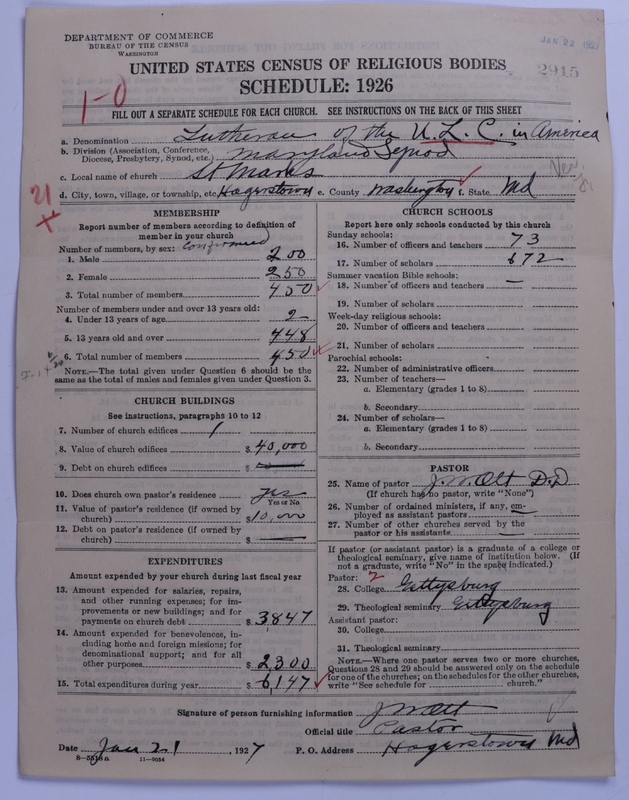 DEPARTMENT OF COMMERCE
BUREAU OF THE CENSUS
WASHINGTON
JAN 22 1927
2915
UNITED STATES CENSUS OF RELIGIOUS BODIES
SCHEDULE: 1926
1-0
FILL OUT A SEPARATE SCHEDULE FOR EACH CHURCH. SEE INSTRUCTIONS ON THE BACK OF THIS SHEET
a. Denomination Lutheran of the U. L. C. in America
b. Division (Association, Conference, Diocese, Presbytery, Synod, etc.) Maryland Synod
c. Local name of church St Marks
d. City, town, village, or township, etc. Hagerstown e. County Washington f. State Md
21
x
MEMBERSHIP
Report number of members according to definition of
member in your church
Number of members, by sex: Confirmed
1. Male 200
2. Female 250
3. Total number of members 450
Number of members under and over 13 years old:
4. Under 13 years of age 2
5. 13 years old and over 448
6. Total number of members 450
NOTE.—The total given under Question 6 should be the
same as the total of males and females given under Question 3.
CHURCH BUILDINGS
See instructions, paragraphs 10 to 12
7. Number of church edifices 1
8. Value of church edifices $ 40,000
9. Debt on church edifices $ —
10. Does church own pastor's residence yes
Yes or No
11. Value of pastor's residence (if owned by
church) $ 10,000
12. Debt on pastor's residence (if owned by
church) $ —
EXPENDITURES
Amount expended by your church during last fiscal year
13. Amount expended for salaries, repairs,
and other running expenses; for im-
provements or new buildings; and for
payments on church debt $ 3847
14. Amount expended for benevolences, in-
cluding home and foreign missions; for
denominational support; and for all
other purposes $ 2300
15. Total expenditures during year $ 6147
CHURCH SCHOOLS
Report here only schools conducted by this church
Sunday schools:
16. Number of officers and teachers 73
17. Number of scholars 672
Summer vacation Bible schools:
18. Number of officers and teachers —
19. Number of scholars
Week-day religious schools:
20. Number of officers and teachers
21. Number of scholars
Parochial schools:
22. Number of administrative officers
23. Number of teachers—
a. Elementary (grades 1 to 8)
b. Secondary
24. Number of scholars—
a. Elementary (grades 1 to 8)
b. Secondary
PASTOR
25. Name of pastor J. W. Ott D.D
(If church has no pastor, write "None")
26. Number of ordained ministers, if any, em-
ployed as assistant pastors —
27. Number of other churches served by the
pastor or his assistants —
If pastor (or assistant pastor) is a graduate of a college or
theological seminary, give name of institution below. (If
not a graduate, write "No" in the space indicated.)
Pastor: 2
28. College Gettysburg
29. Theological seminary Gettysburg
Assistant pastor:
30. College
31. Theological seminary
NOTE.—Where one pastor serves two or more churches,
Questions 28 and 29 should be answered only on the schedule
for one of the churches; on the schedules for the other churches,
write "See schedule for church."
Signature of person furnishing information J W Ott
Official title Pastor
Date Jan 21, 1927 P. O. Address Hagerstown Md
8-5518a 11-9054